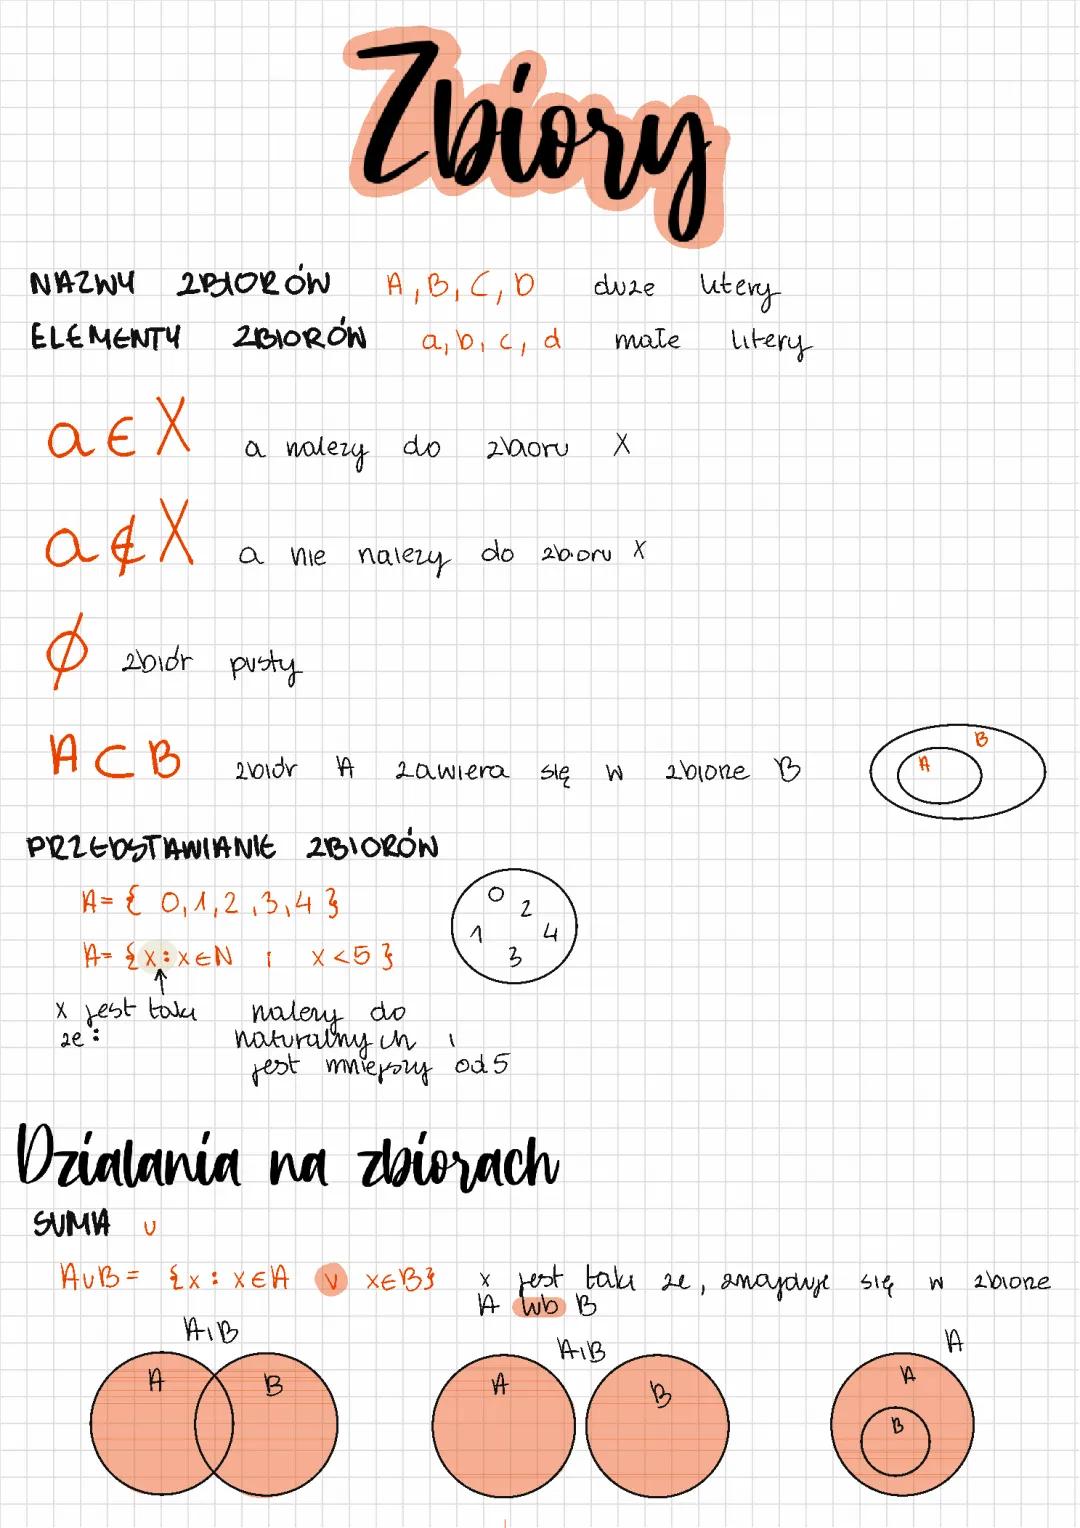 Zbiory
NAZWY ZBIORÓW A, B, C, D duże litery
ELEMENTY ZBIORÓW a, b, c, d małe litery
a∈X a należy do zbioru X
a∉X a nie należy do zbioru X
∅ zbiór pusty
A⊂B zbiór A zawiera się w zbiorze B
B
A
PRZEDSTAWIANIE ZBIORÓW
A= { 0,1,2,3,4 }
0 2 1 4 3
A= {x:x∈N i x<5}
x jest taki należy do
że: naturalnych i
jest mniejszy od 5
Dzialania na zbiorach
SUMA ∪
A∪B= {x: x∈A ∨ x∈B} x jest taki że, znajduje się w zbiorze
A lub B
A i B
A B
A i B
A B
A
A
B